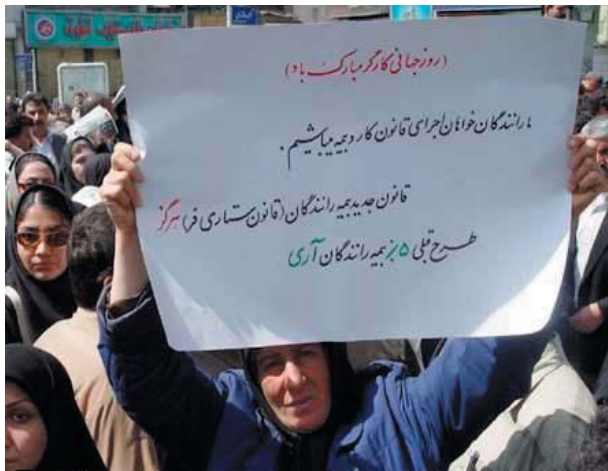 (روز جهانی کارگر مبارک باد)
ما رانندگان خواهان اجرای قانون کار و بیمه میباشیم.
قانون جدید بیمه رانندگان (قانون ستاری فر) هرگز
طرح قبلی ۵٪ بیمه رانندگان آری